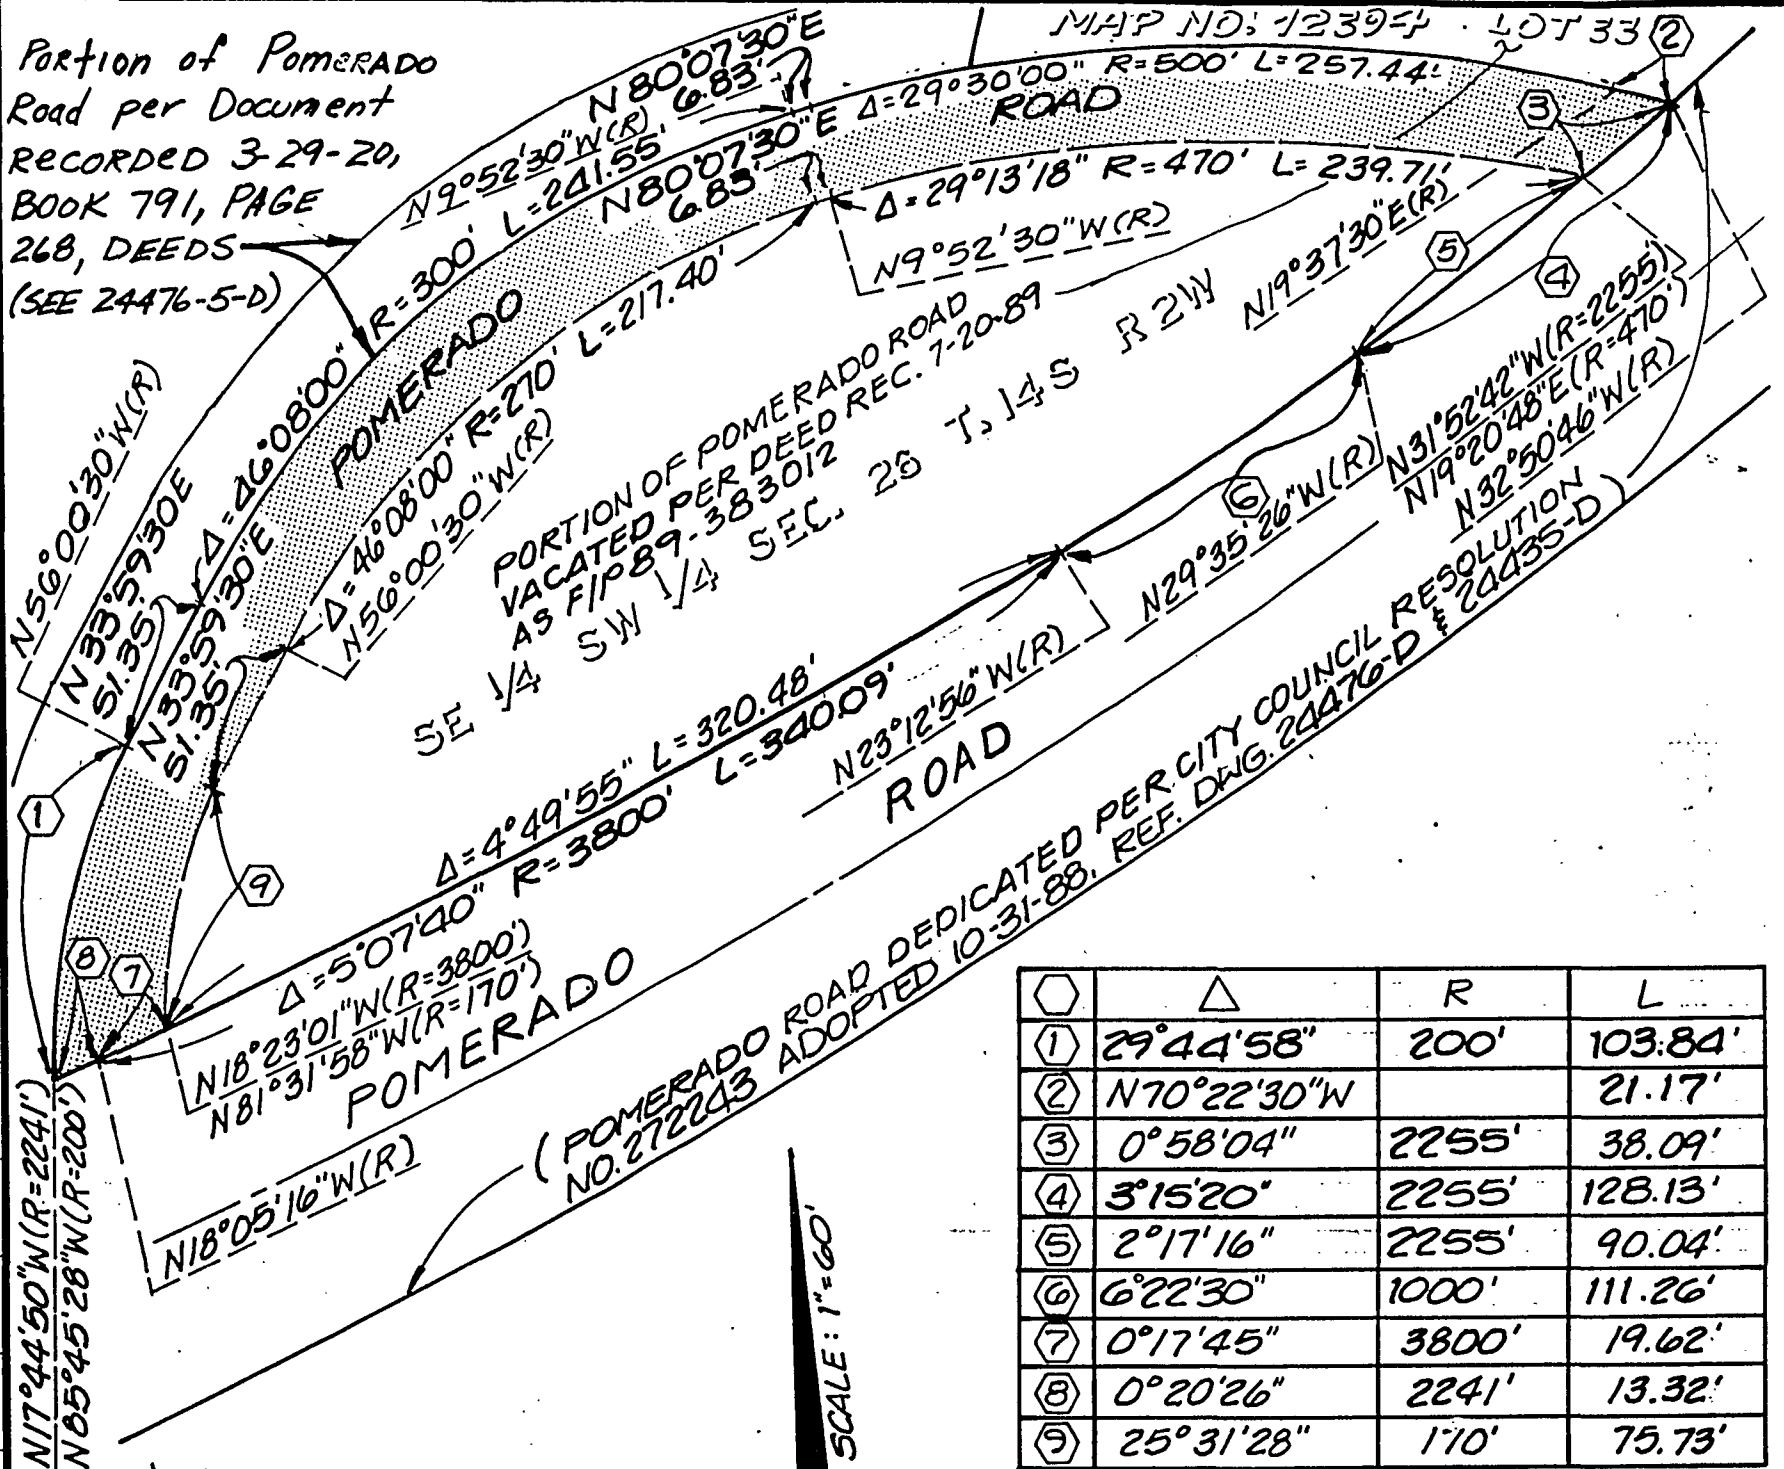 Portion of POMERADO
Road per Document
RECORDED 3-29-20,
BOOK 791, PAGE
268, DEEDS
(SEE 24476-5-D)
MAP NO: 12394 · LOT 33
2
N80°07'30"E
6.83'
N9°52'30"W(R)
Δ=29°30'00" R=500' L=257.44'
ROAD
3
N80°07'30"E
6.83'
Δ=29°13'18" R=470' L=239.71'
N9°52'30"W(R)
N19°37'30"E(R)
5
4
Δ=46°08'00" R=300' L=241.55'
POMERADO
Δ=46°08'00" R=270' L=217.40'
N56°00'30"W(R)
N56°00'30"W(R)
N33°59'30E
51.35'
N33°59'30"E
51.35'
PORTION OF POMERADO ROAD
VACATED PER DEED REC. 7-20-89
AS F/P 89-383012
SE 1/4 SW 1/4 SEC. T.14S R2W
N31°52'42"W(R=2255')
N19°20'48"E(R=470')
N32°50'46"W(R)
6
N29°35'26"W(R)
N23°12'56"W(R)
1
9
8
7
Δ=4°49'55" L=320.48'
Δ=5°07'40" R=3800' L=340.09'
N18°23'01"W(R=3800')
N81°31'58"W(R=170')
POMERADO ROAD
N18°05'16"W(R)
N17°44'50"W(R=2241')
N85°45'28"W(R=200')
(POMERADO ROAD DEDICATED PER CITY COUNCIL RESOLUTION
NO. 272243 ADOPTED 10-31-88, REF. DWG. 24476-D & 24435-D)
SCALE: 1"=60'
△ R L
1 29°44'58" 200' 103.84'
2 N70°22'30"W 21.17'
3 0°58'04" 2255' 38.09'
4 3°15'20" 2255' 128.13'
5 2°17'16" 2255' 90.04'
6 6°22'30" 1000' 111.26'
7 0°17'45" 3800' 19.62'
8 0°20'26" 2241' 13.32'
9 25°31'28" 170' 75.73'